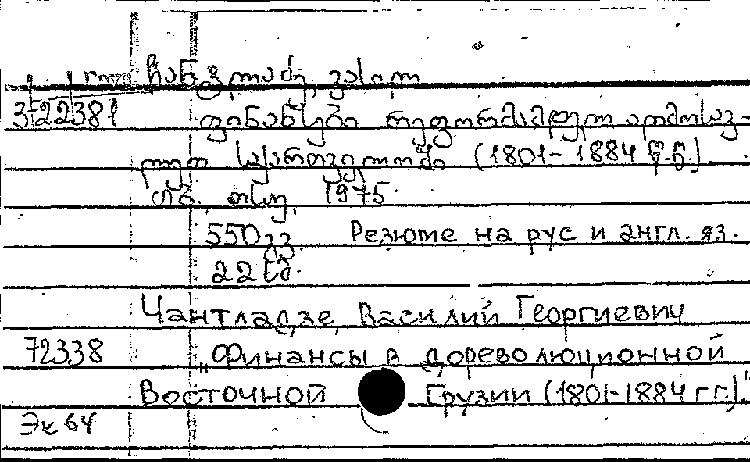 ჩანტლაძე, ვასილ
322381 ფინანსები რეფორმამდელ აღმოსავ-
ლეთ საქართველოში (1801-1884 წ.წ.)
თბ., თსუ, 1975.
550 გვ. Резюме на рус и англ. яз.
22 სმ.
Чантладзе, Василий Георгиевич
72338 „Финансы в дореволюционной
Восточной Грузии (1801-1884 гг.)"
Эк 64